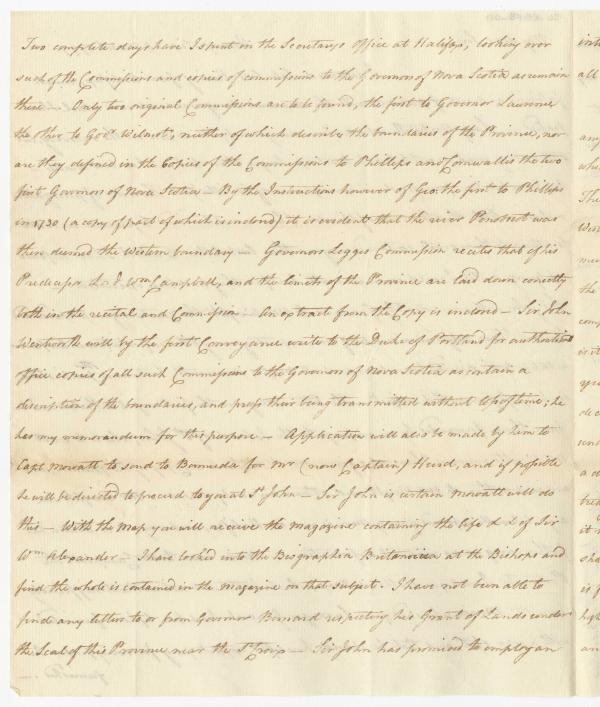 Two complete days have I spent in the Secretarys office at Halifax, looking over
such of the Commissions and copies of commissions to the Governors of Nova Scotia as remain
there — Only two original Commissions are to be found, the first to Governor Lawrence
the other to Govr Wilmot, neither of which describe the boundaries of the Province, nor
are they defined in the Copies of the Commissions to Phillips and Cornwallis the two
first Governors of Nova Scotia — By the Instructions however of Geo: the first to Phillips
in 1730 (a copy of part of which is inclosed) it is evident that the river Penobscot was
then deemed the Western boundary — Governor Legges Commission recites that of his
Predecessor Ld Wm Campbell, and the limits of the Province are laid down correctly
both in the recital and Commission. An extract from the Copy is inclosed — Sir John
Wentworth will by the first Conveyance write to the Duke of Portland for authentic
office copies of all such Commissions to the Governors of Nova Scotia as contain a
description of the boundaries, and press their being transmitted without loss of time; he
has my memorandum for this purpose — Application will also be made by him to
Capt Mowatt to send to Bermuda for Mr (now Captain) Hurd, and if possible
he will be directed to proceed to you at St John — Sir John is certain Mowatt will do
this — With the Map you will receive the magazine containing the life &c &c of Sir
Wm Alexander — I have looked into the Biographia Britannica at the Bishops and
find the whole is contained in the Magazine on that subject. I have not been able to
find any letters to or from Governor Bernard respecting his Grant of Lands under
the Seal of this Province near the St Croix — Sir John has promised to employ an
all
any
The
the
is it
a
it
is
an